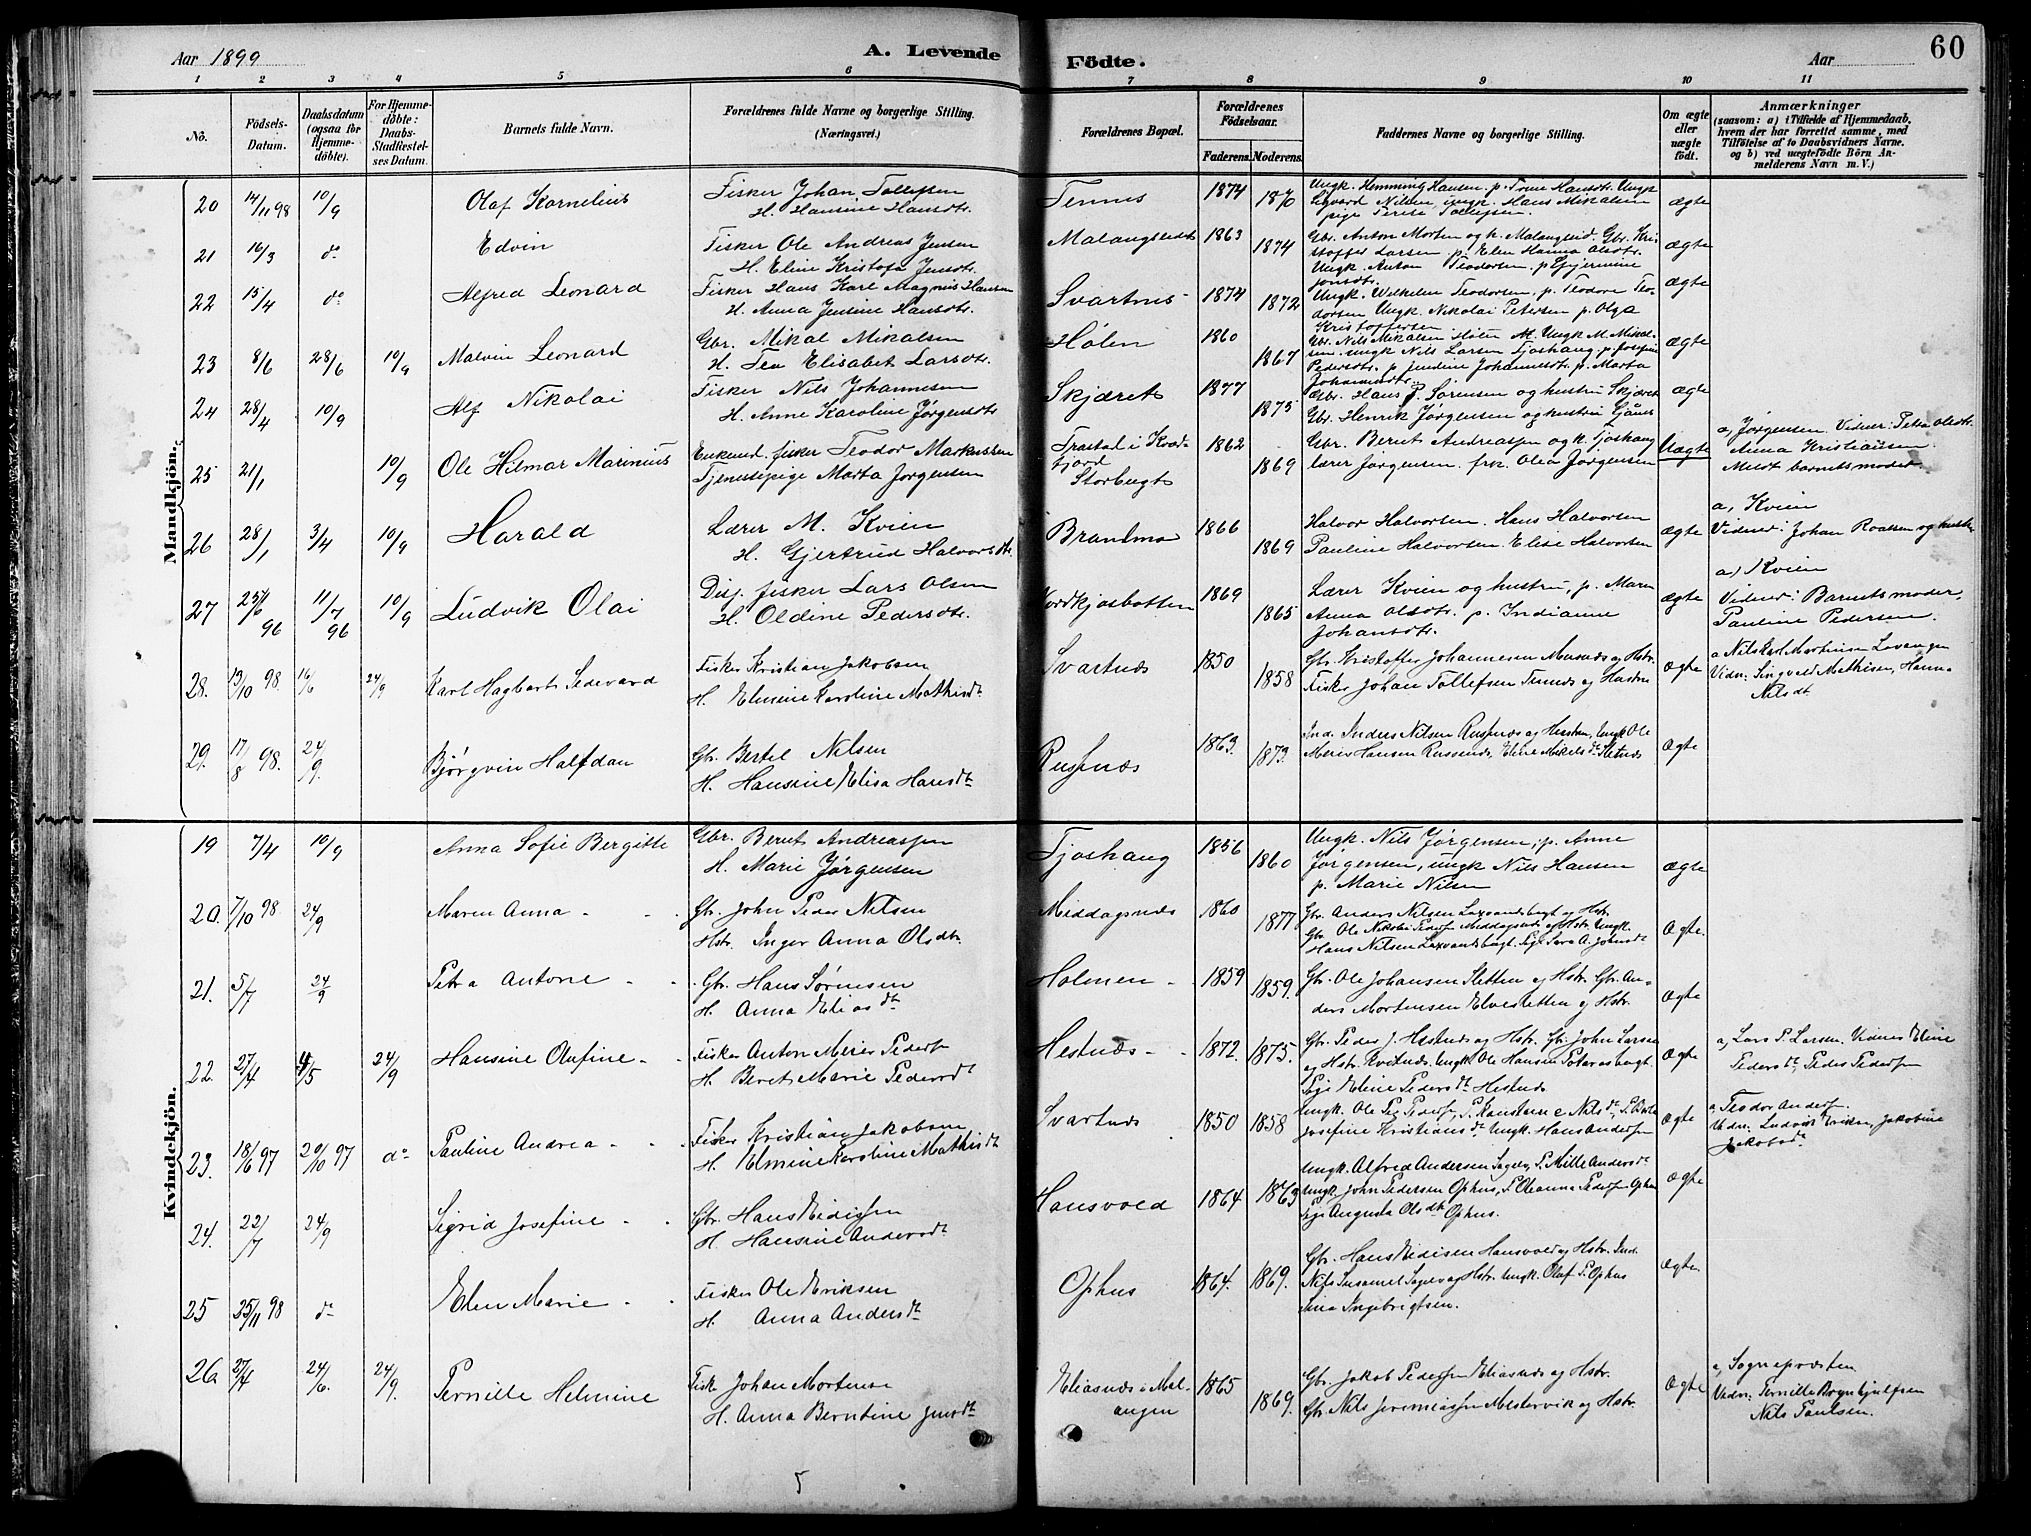 Aar 1899
A. Levende
Födte.
Aar
60
1 2 3 4 5 6 7 8 9 10 11
No.
Födsels-Datum.
Daabsdatum (ogsaa for Hjemme-döbte).
For Hjemme-döbte: Daabs-Stadfæstel-ses Datum.
Barnets fulde Navn.
Forældrenes fulde Navne og borgerlige Stilling. (Næringsvei.)
Forældrenes Bopæl.
Forældrenes Födselsaar.
Faderens. Moderens.
Faddernes Navne og borgerlige Stilling.
Om ægte eller uægte födt.
Anmærkninger
(saasom: a) i Tilfælde af Hjemmedaab, hvem der har forrettet samme, med Tilföielse af to Daabsvidners Navne. og b) ved uægtefödte Börn An-melderens Navn m. V.)
Mandkjön.
20 14/11 98 10/9 Olaf Kornelius
Fisker Johan Tollefsen
H. Hansine Hansdtr.
Tennes 1874 1870
Ungk. Hemming Hansen. p. Trine Hansdtr. Ungk
Sigvard Nilsen, ungk. Hans Mikalsen
pige Terese Tollefsen.
ægte
21 16/3 do Edvin
Fisker Ole Andreas Jensen
H. Eline Kristofa Jensdtr.
Malangseidet 1863 1874
Gbr. Anton Morten og h. Malangseid. Gbr. Kris
toffer Larsen p. Elen Hanna Olsdtr.
ægte
22 15/4 do Alfred Leonard
Fisker Hans Karl Magnus Hansen
H. Anna Jensine Hansdtr.
Svartnes 1874 1872
Ungk. Anton Teodorsen, p.
Ungk. Wilhelm Teodorsen, p. Teodora Teo-
dorsen Ungk Nikolai Petersen p. Olga
Kristoffersen
ægte
23 8/6 28/6 10/9 Malvin Leonard
Gbr. Mikal Mikalsen
H. Tea Elisabet Larsdtr.
Hølen 1860 1867
Gbr. Nils Mikalsen Hølen Ungk M. Mikal-
sen. ungk Nils Larsen Tjoshaug, p. Josefine
Pedersdtr. p Jensine Johannesdtr. p. Marta
Johannesdtr.
ægte
24 28/4 10/9 Alf Nikolai
Fisker Nils Johannesen
H. Anne Karoline Jørgensdtr
Skjæret 1877 1875
Gbr. Hans P. Sørensen og hustru Skjæret
Gbr. Henrik Jørgensen og hustru
ægte
25 21/1 10/9 Ole Hilmar Marinius
Enkemd. fisker Teodor Markussen
Tjenestepige Marta Jørgensen
Trastad i Kvæd-
fjord
Storbugt 1862 1869
Gbr. Berut Andreassen og h. Tjoshaug
lærer Jørgensen. frk. Olea Jørgensen
Uægte
a, Jørgensen. Vidner: Petra Olsdtr.
Anna Kristiansen.
Meldt barnets moder.
26 28/1 3/4 10/9 Harald
Lærer M. Kvien
H. Gjertrud Halvorsdtr.
Brandmo 1866 1869
Halvor Halvorsen. Hans Halvorsen
Pauline Halvorsen. Elise Halvorsen
ægte
a, Kvien
Vidner: Johan Roassen og hustru
27 25/6 96 11/7 96 10/9 Ludvik Olai
Disp. fisker Lars Olsen
H. Oldine Pedersdtr.
Nordkjosbotten 1869 1865
Lærer Kvien og hustru, p. Maren
Anna Olsdtr. p. Indianne
Johansdtr.
ægte
a) Kvien
Vidner: Barnets moder,
Pauline Pedersen.
28. 13/10 98 16/6 24/9 Karl Hagbart Sedevard
Fisker Kristian Jakobsen
H. Elmine Karoline Mathisdt
Svartnæs 1850 1858
Gbr. Kristoffer Johannesen og Hstr.
Fisker Johan Tollefsen Tennæs og Hustru
ægte
Vidn: Singvold Mathisen, Hanna
Nilsdt
29. 17/8 98. 24/9. Bjørgvin Halfdan
Gbr. Bertel Nilsen
H. Hansine Elisa Hansdt
Russenæs 1863. 1873.
Ind. Anders Nilsen Russenæs og Hustru, Ungk Ole
Meier Hansen Russenæs, Eline Mikelsdt Hestnæs
Ægte
Kvindekjön.
19 7/4 10/9 Anna Sofie Bergitte
Gbr. Berut Andreassen
H. Marie Jørgensen
Tjoshaug 1856 1860
Ungk. Nils Jørgensen, p. Anne
Jørgensen, ungk Nils Hansen
p. Marie Nilsen
ægte
20. 7/10 98 24/9 Maren Anna
Gbr. John Peder Nilsen
Hstr. Inger Anna Olsdtr.
Middagsnæs 1860 1877
Gbr. Anders Nilsen Laxvandsbugt og Hstr.
Gbr. Ole Nikolai Peders. Middagsnæs og Hstr. Ungk.
Hans Nilsen Laxvandsbugt. Pige Sara A. Johnsdt
Ægte.
21. 5/7 24/9 Petra Antone
Gbr. Hans Sørensen
H. Anna Eliasdt
Holmen 1859 1859.
Gbr. Ole Johansen Sletten og Hstr. Gbr. An-
ders Mortensen Elvesletten og Hstr.
Ægte
22. 27/4 4/5 24/9 Hansine Olufine
Fisker Anton Meier Peders.
H. Beret Marie Pedersdt
Hestnæs 1872. 1875.
Gbr. Peder J. Hestnæs og Hstr. Gbr. John Larsen
og Hstr. Kvitnæs. Ungk. Ole Hansen
Pige Eline Pedersdt Hestnæs
Ægte
a, Lars P. Larsen. Vidner Eline
Pedersdt, Peder Peders.
23. 18/6 97 20/10 97 do Pauline Andrea
Fisker Kristian Jakobsen
H. Elmine Karoline Mathisdt
Svartnæs 1850 1858
Josefine Kristiansdt Ungk. Hans Anders.
Ægte
a, Teodor Anders.
Vidn. Ludvig Eriksen, Jakobine
Jakobsdt
24. 22/7 24/9 Sigrid Josefine
Gbr. Hans Eidissen
H. Hansine Andersdt
Hansvold 1864 1863
Ungk. Alfred Andersen Sagelv, P. Mille Andersdt
Ungk. John Pedersen Ophus, P. Oleanna Peders. Ophus
Pige Augusta Olsdt Ophus.
Ægte
25 25/11 98 do Elen Marie
Fisker Ole Eriksen
H. Anna Andersdt
Ophus 1864. 1869.
Gbr. Hans Eidisen Hansvold og Hstr. Ind.
Nils Susamel Sagelv og Hstr. Ungk. Oluf P. Ophus
Sina Ingebrigtsen.
Ægte.
26 27/4 24/6. 24/9. Pernille Helmine
Fisk. Johan Mortensen
H. Anna Berntine Jensdt
Eliasnæs i Mal-
angen 1865 1869.
Gbr. Jakob Peders. Eliasnæs og Hstr.
Gbr. Nils Jeremiass. Mestervik og Hstr.
Ægte
a, Sognepræsten
Vidn: Pernille Brynhjulfsen
Nils Paulsen.
5